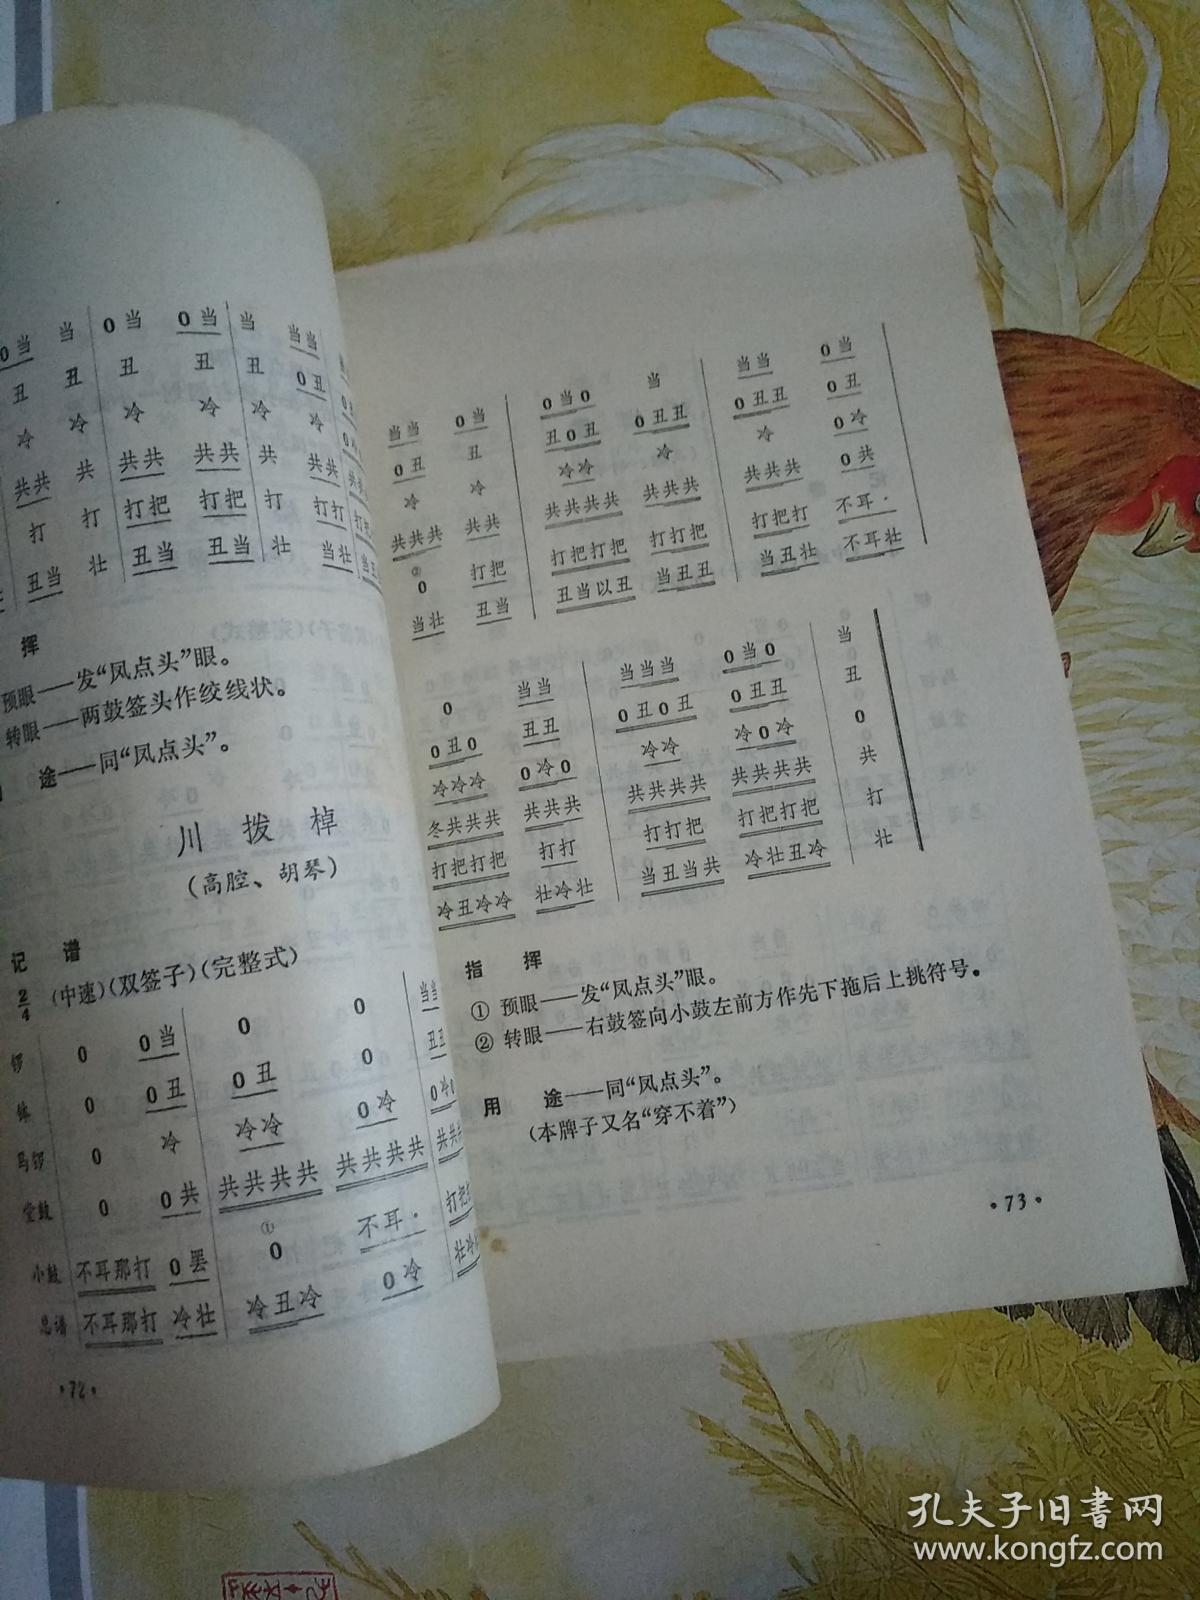 0当 当 0当 0当 当 当当
丑 丑 丑 丑 丑 0丑
冷 冷 冷 冷 冷 冷
共共 共 共共 共共 共 共共
打 打 打把 打把 打 打打
丑当 壮 丑当 丑当 壮 当壮
挥
预眼——发“凤点头”眼。
转眼——两鼓签头作绞线状。
途——同“凤点头”。
川拨棹
(高腔、胡琴)
记 谱
2/4 (中速)(双签子)(完整式)
锣 0 0当 0 0 当当
0 0丑 0丑 0 丑丑
马锣 0 冷 冷冷 0冷 0冷0
堂鼓 0 0共 共共共共 共共共共 共共共
小鼓 不耳那打 0罢 ① 0 不耳· 打把
总谱 不耳那打 冷壮 冷丑冷 0冷 壮冷
·72·
当当 0当 0当0 当 当当 0当
0丑 丑 丑0丑 0丑丑 0丑丑 0丑
冷 冷 冷冷 冷 冷 0冷
共共共 共共 共共共共 共共共 共共共 0共
② 0 打把 打把打把 打打把 打把打 不耳·
当壮 丑当 丑当以丑 当丑丑 当丑壮 不耳壮
0 当当 当当当 0当0 当
0丑0 丑丑 0丑0丑 0丑丑 丑
冷冷冷 0冷0 冷冷 冷0冷 0
冬共共共 共共共 共共共共 共共共共 共
打把打把 打打 打打把 打把打把 打
冷丑冷冷 壮冷壮 当丑当共 冷壮丑冷 壮
指 挥
① 预眼——发“凤点头”眼。
② 转眼——右鼓签向小鼓左前方作先下拖后上挑符号。
用 途——同“凤点头”。
(本牌子又名“穿不着”)
·73·
孔夫子旧书网
www.kongfz.com